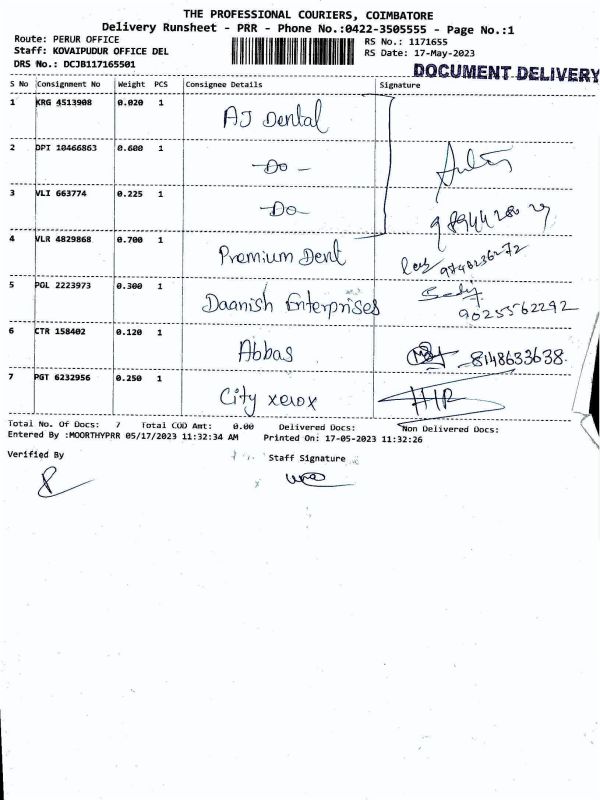 THE PROFESSIONAL COURIERS, COIMBATORE
Delivery Runsheet - PRR - Phone No.:0422-3505555 - Page No.:1
Route: PERUR OFFICE
RS No.: 1171655
Staff: KOVAIPUDUR OFFICE DEL
RS Date: 17-May-2023
DRS No.: DCJB117165501
DOCUMENT DELIVERY
S No Consignment No Weight PCS Consignee Details Signature
1 KRG 4513908 0.020 1 AJ Dental
2 DPI 10466863 0.600 1 -Do-
3 VLI 663774 0.225 1 -Do-
4 VLR 4829868 0.700 1 Premium Dent
5 POL 2223973 0.300 1 Daanish Enterprises 9025562292
6 CTR 158402 0.120 1 Abbas 8148633638
7 PGT 6232956 0.250 1 City xerox
Total No. Of Docs: 7 Total COD Amt: 0.00 Delivered Docs: Non Delivered Docs:
Entered By :MOORTHYPRR 05/17/2023 11:32:34 AM Printed On: 17-05-2023 11:32:26
Verified By Staff Signature